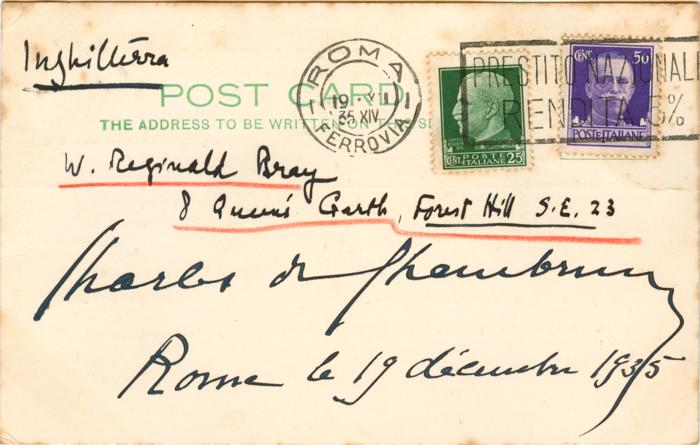 Inghilterra
ROMA
19 . XII
35 XIV
FERROVIA
PRESTITO NAZIONALE
RENDITA 5%
CENT. 25
POSTE ITALIANE
CENT 50
POSTE ITALIANE
POST CARD
THE ADDRESS TO BE WRITTEN ON THIS SI
W. Reginald Bray
8 Queen's Garth, Forest Hill S.E. 23
Charles de Chambrun
Rome le 19 décembre 1935